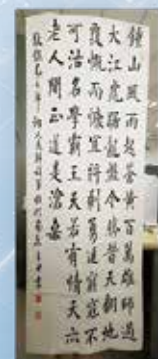 鐘山風雨起蒼黄百萬雄師過
大江虎踞龍盤今勝昔天翻地
覆慨而慷宜將剩勇追窮寇不
可沽名學霸王天若有情天亦
老人間正道是滄桑
人民解放軍